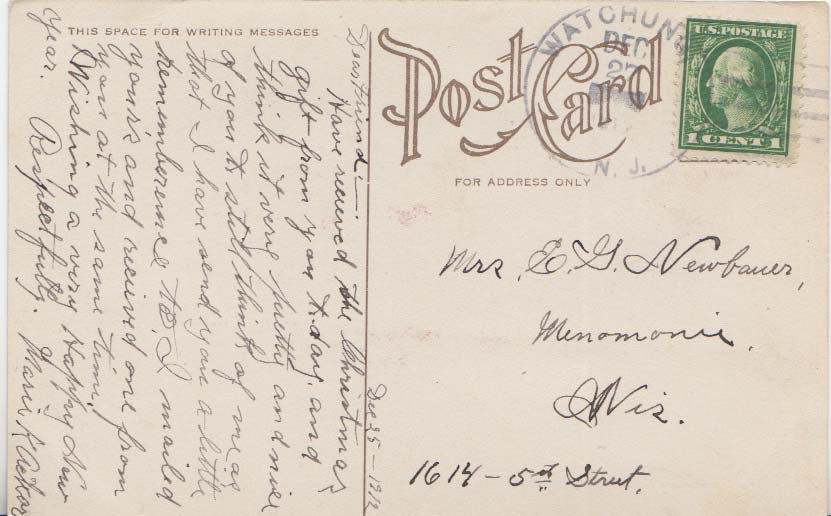 THIS SPACE FOR WRITING MESSAGES
Dear Friend:—
Have recieved the Christmas
gift from you to-day, and
think it very pretty and nice
of you to still think of me as
that I have send you a little
rememberence to. I mailed
your's and recieved one from
you at the same time.
Wishing a very Happy New
Year. Respectfully,
Marie K
Dec 25 – 1912
Post Card
FOR ADDRESS ONLY
WATCHUNG
DEC
N. J.
U.S. POSTAGE
1 CENT 1
Mrs. E. G. Newbauer,
Menomonie,
Wis.
1614 – 5th Street.